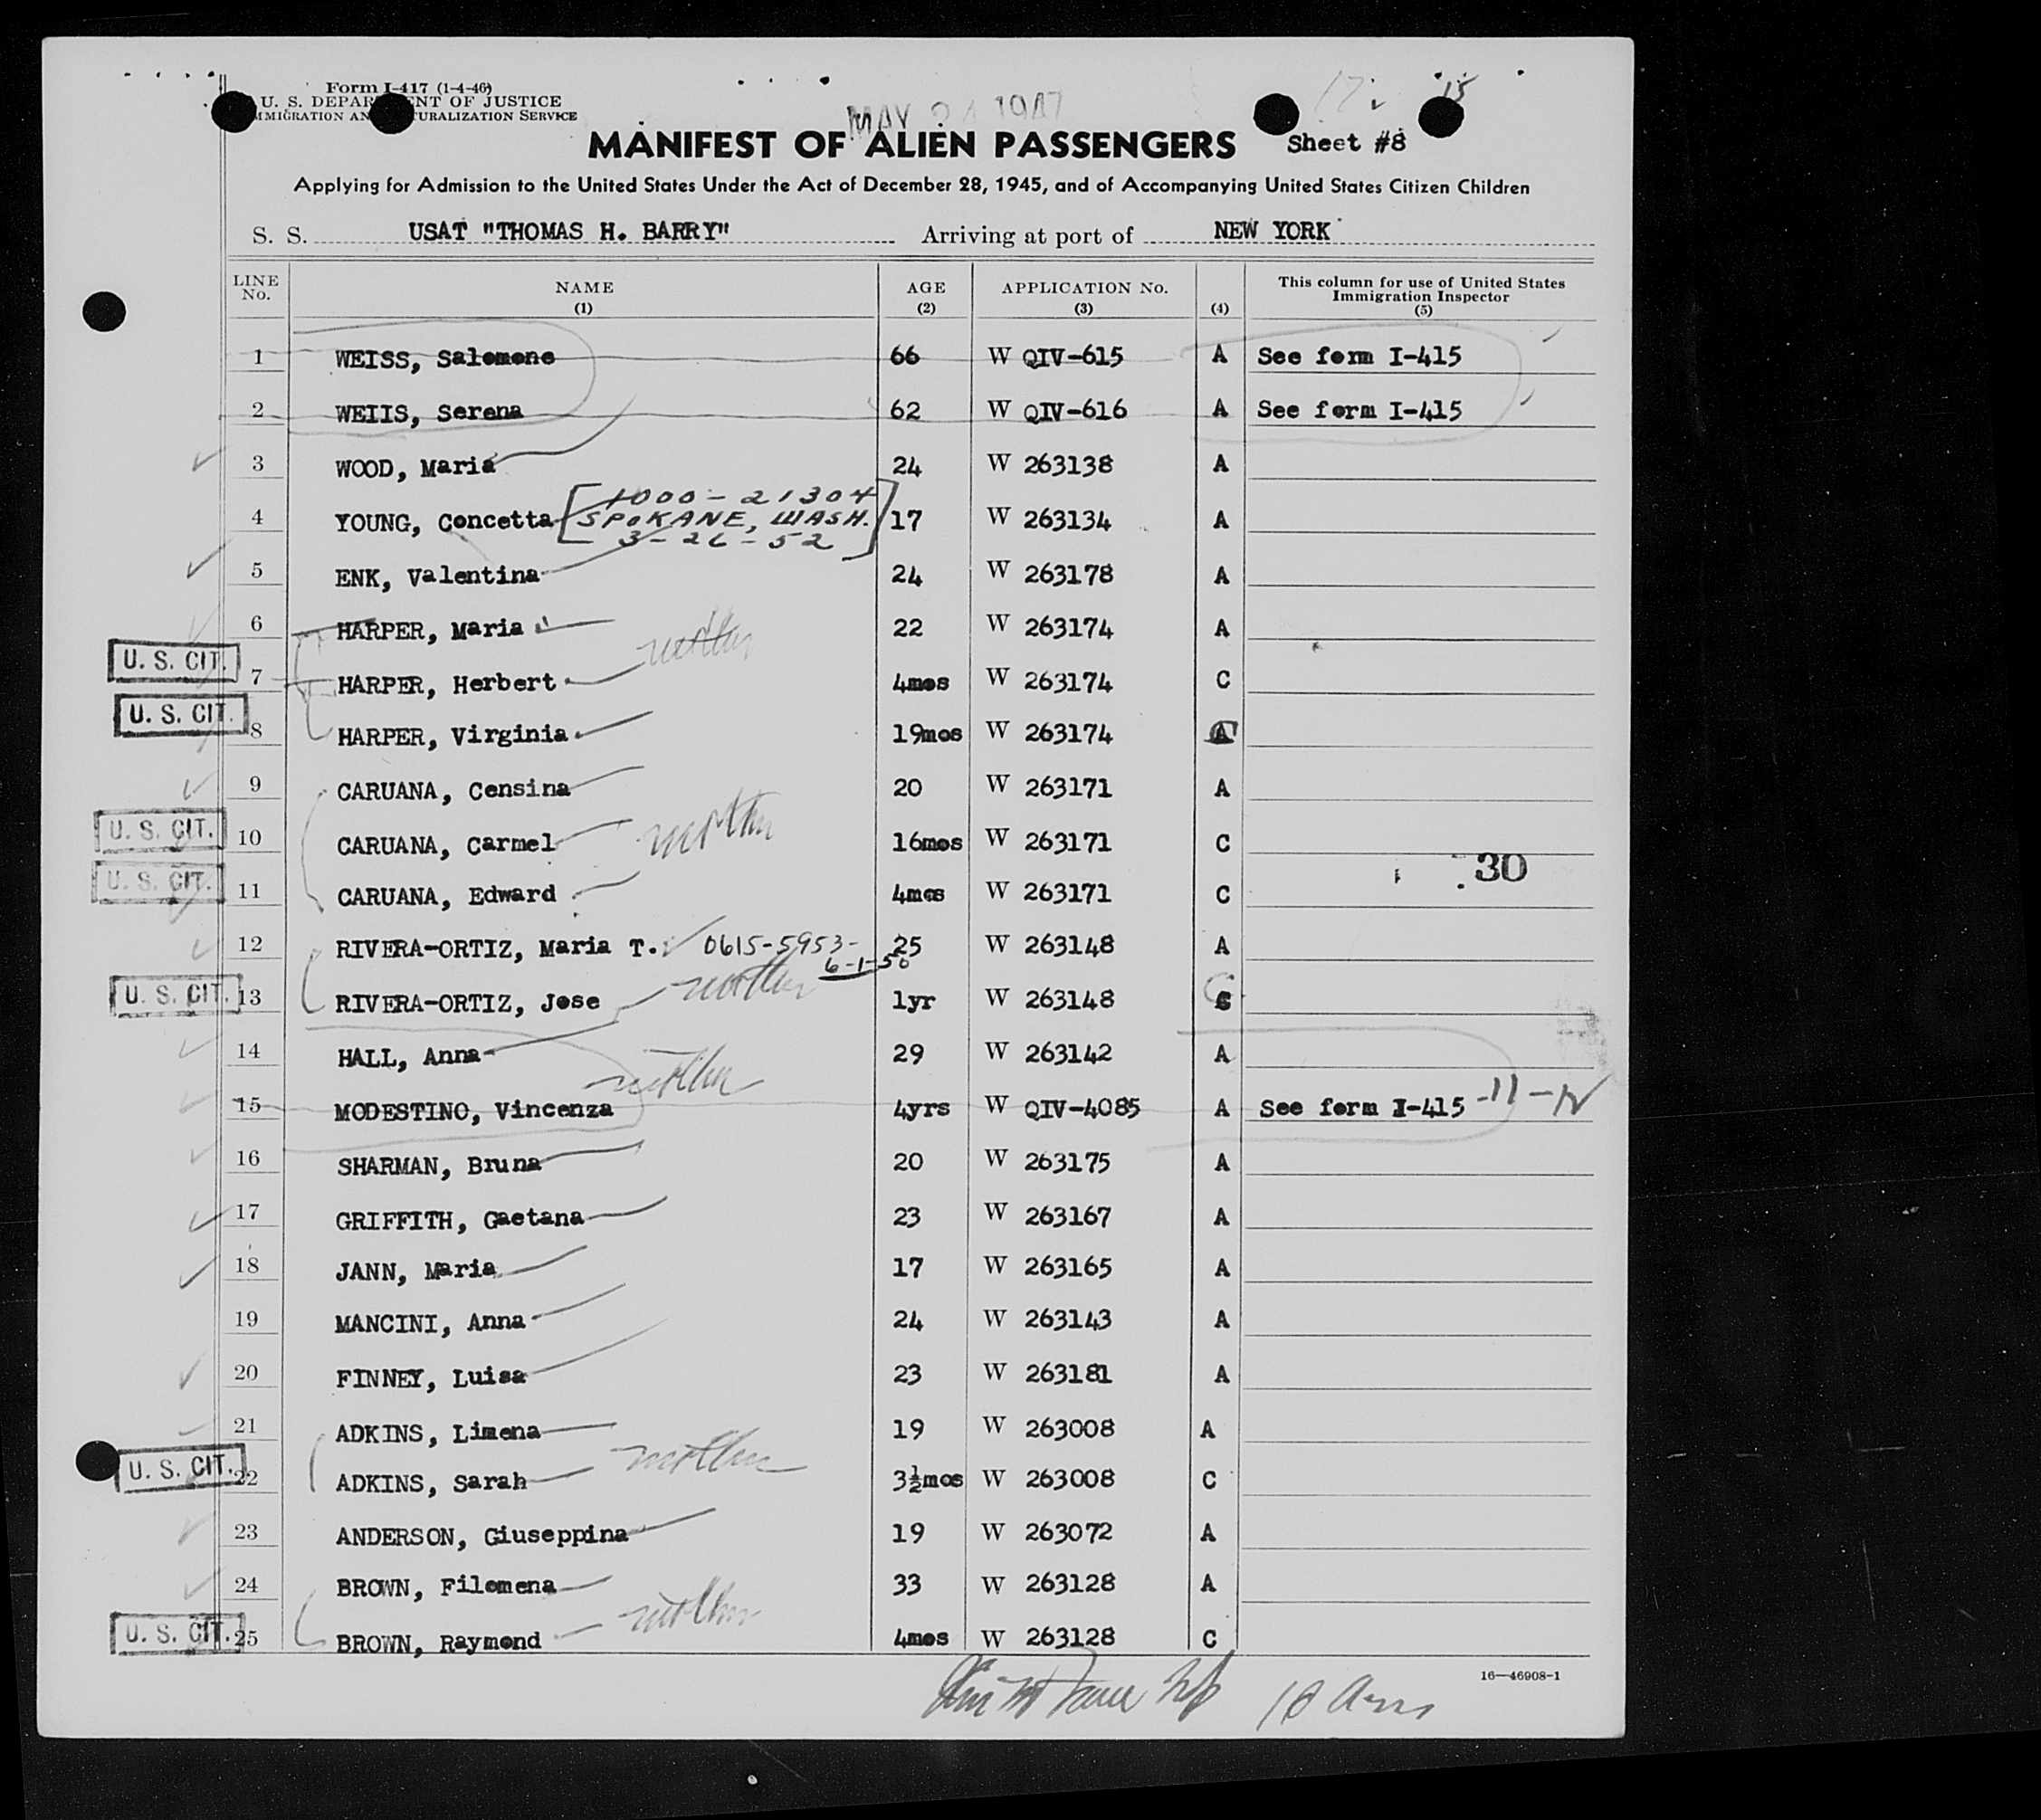 Form I-417 (1-4-46)
U. S. DEPAR ENT OF JUSTICE
MMIGRATION AN URALIZATION SERVICE
MAY 24 1947
15
MANIFEST OF ALIEN PASSENGERS
Sheet #8
Applying for Admission to the United States Under the Act of December 28, 1945, and of Accompanying United States Citizen Children
S. S. USAT "THOMAS H. BARRY" Arriving at port of NEW YORK
LINE No. NAME (1) AGE (2) APPLICATION No. (3) (4) This column for use of United States Immigration Inspector (5)
1 WEISS, Salomone 66 W QIV-615 A See form I-415
2 WEIIS, Serena 62 W QIV-616 A See form I-415
3 WOOD, Maria 24 W 263138 A
4 YOUNG, Concetta [1000-21304 SPOKANE, WASH. 3-26-52] 17 W 263134 A
5 ENK, Valentina 24 W 263178 A
6 HARPER, Maria 22 W 263174 A
mother
U. S. CIT. 7 HARPER, Herbert 4mos W 263174 C
U. S. CIT. 8 HARPER, Virginia 19mos W 263174
9 CARUANA, Censina 20 W 263171 A
U. S. CIT. 10 CARUANA, Carmel mother 16mos W 263171 C
30
U. S. CIT. 11 CARUANA, Edward 4mos W 263171 C
12 RIVERA-ORTIZ, Maria T. 0615-5953- 6-1-50 25 W 263148 A
U. S. CIT. 13 RIVERA-ORTIZ, Jose mother 1yr W 263148 C
14 HALL, Anna 29 W 263142 A
mother
15 MODESTINO, Vincenza 4yrs W QIV-4085 A See form I-415
16 SHARMAN, Bruna 20 W 263175 A
17 GRIFFITH, Gaetana 23 W 263167 A
18 JANN, Maria 17 W 263165 A
19 MANCINI, Anna 24 W 263143 A
20 FINNEY, Luisa 23 W 263181 A
21 ADKINS, Limena 19 W 263008 A
mother
U. S. CIT. 22 ADKINS, Sarah 3½mos W 263008 C
23 ANDERSON, Giuseppina 19 W 263072 A
24 BROWN, Filomena 33 W 263128 A
mother
U. S. CIT. 25 BROWN, Raymond 4mos W 263128 C
16—46908-1